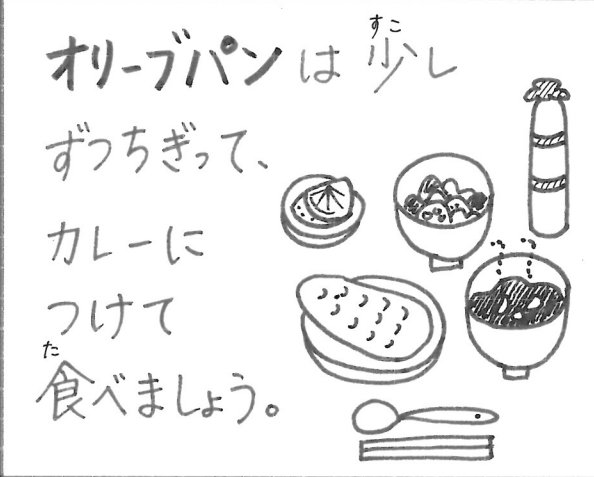 オリーブパンは少し
ずつちぎって、
カレーに
つけて
食べましょう。
すこ
た